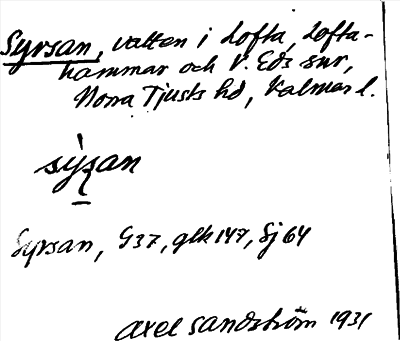 Syrsan, vatten i Lofta, Lofta-
hammar och V. Eds snr,
Norra Tjusts hd, Kalmar l.
sýʒan
Syrsan, G37, glk 147, Sj 64
Axel Sandström 1931